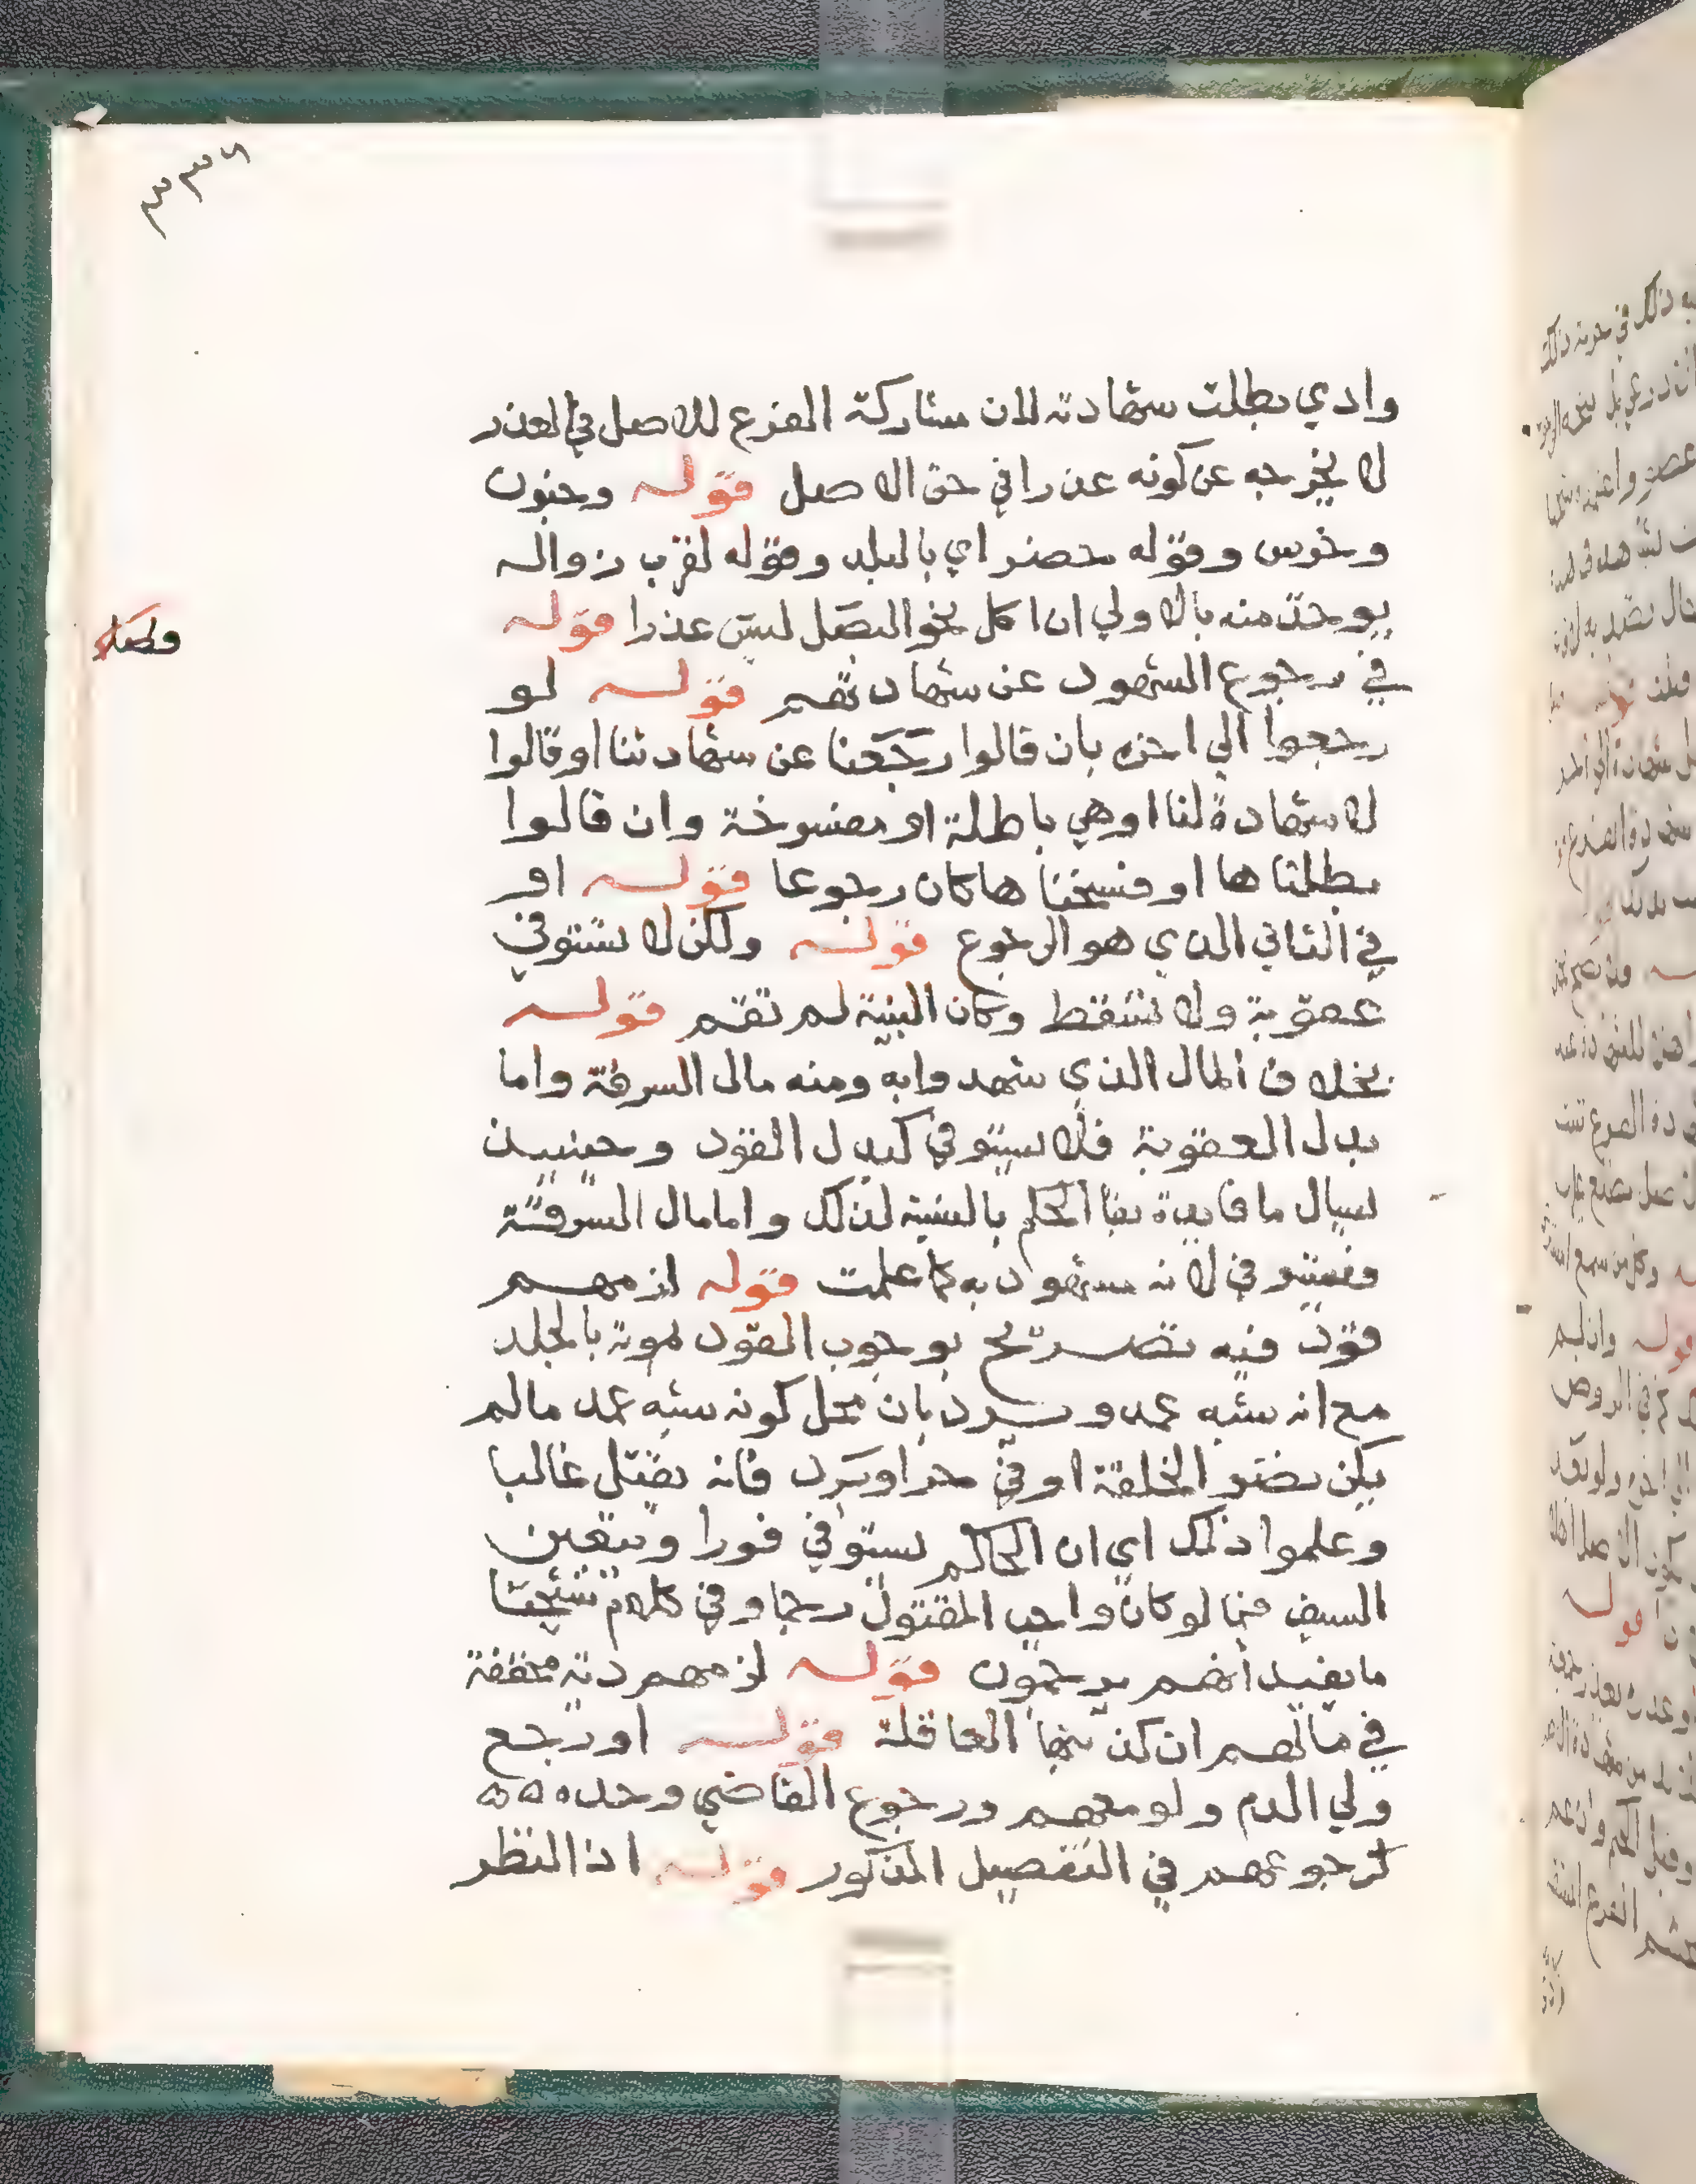 ٣٣٦
وادي بطلت شهادته لان مشاركة الفرع للاصل في العذر
لا يخرجه عن كونه عذرا في حق الاصل قوله وجنون
وخرس وقوله حضر اي بالبلد وقوله لقرب زواله
يوخذ منه بالاولي ان اكل نحو البصل ليس عذرا قوله
فصل
في رجوع الشهود عن شهادتهم قوله لو
رجعوا الي اخره بان قالوا رجعنا عن شهادتنا او قالوا
لا شهادة لنا او هي باطلة او مفسوخة وان قالوا
بطلناها او فسخناها كان رجوعا قوله او
في الثاني الذي هو الرجوع قوله ولكن لا تستوفي
عقوبة ولا تسقط وكان البينة لم تقم قوله
بخلاف المال الذي شهدوا به ومنه مال السرقة واما
بدل العقوبة فلا يستوفي كبدل القود وحينيذ
يسال ما فايدة بقا الحكم بالبينة لذلك واما مال السرقة
فيستوفي لانه مشهود به كما علمت قوله لزمهم
قود فيه تصريح بوجوب القود لموته بالجلد
مع انه شبه عمد ويرد بان محل كونه شبه عمد ما لم
يكن نضو الخلقة او في حر او برد فانه يقتل غالبا
وعلموا ذلك اي ان الحاكم يستوفي فورا ويتعين
السيف فيما لو كان واجب المقتول رجما وفي كلام شيخنا
ما يفيد انهم يرجمون قوله لزمهم دية مخففة
في مالهم ان كذبتها العاقلة قوله او رجع
ولي الدم ولو معهم ورجوع القاضي وحده ه ه
كرجوعهم في التفصيل المذكور قوله اذا النظر